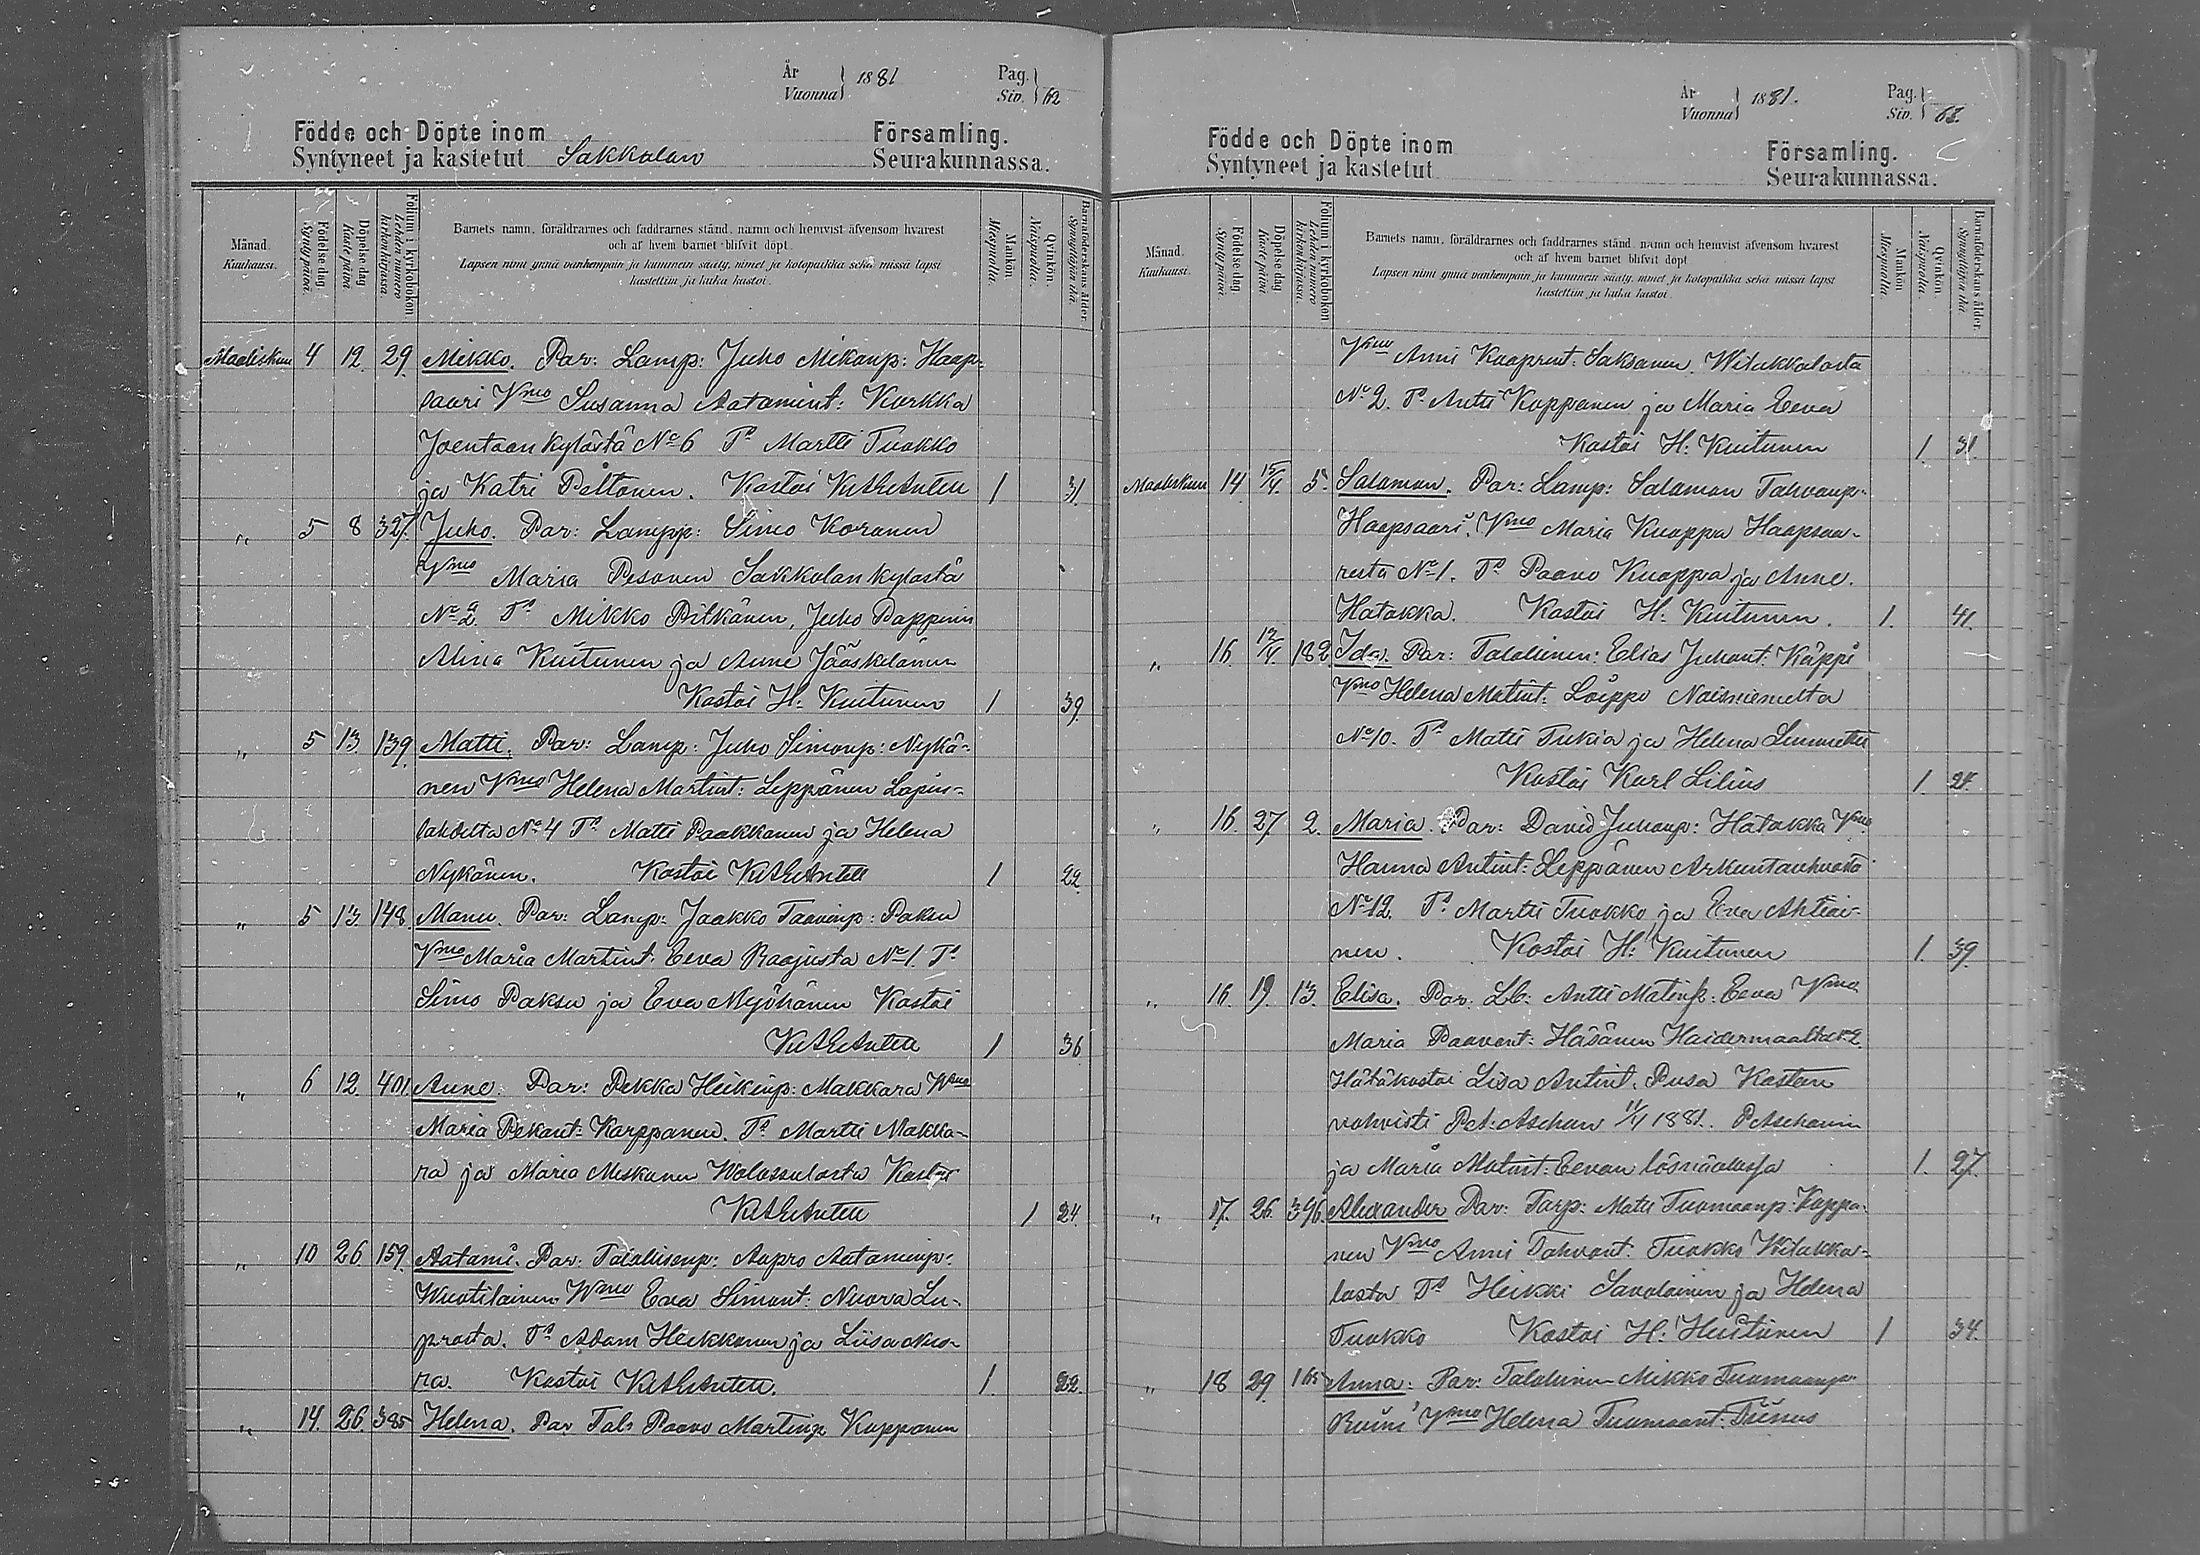 År
Vuonna } 1881
Pag.
Siv. } 62
Födde och Döpte inom Församling.
Syntyneet ja kastetut Sakkolan Seurakunnassa.
Månad. Kuukausi.
Födelsedag Syntypäivä.
Döpelsedag Kastepäivä
Folium i kyrkoboken Lehden numero kirkonkirjassa.
Barnets namn, föräldrarnes och faddrarnes stånd, namn och hemvist äfvensom hvarest
och af hvem barnet blifvit döpt.
Lapsen nimi ynnä vanhempain ja kummein sääty, nimet ja kotopaikka sekä missä lapsi
kastettiin ja kuka kastoi.
Mankön. Miespuolia.
Qvinkön. Naispuolia.
Barnaföderskans ålder. Synnyttäjän ikä
Maaliskuu 4 12. 29. Mikko. Par: Lamp: Juho Mikonp: Haap-
saari Vmo Susanna Aatamint: Kurkka
Joentaan kylästä No 6 Ts Martti Tuokko
ja Katri Peltonen. Kastoi 1 31
" 5 8 327. Juho. Par: Lampp: Simo Koranen
Vmo Maria Pesonen Sakkolan kylästä
No 2. Ts Mikko Pitkänen, Juho Papponen
Miina Kuitunen ja Anne Jääskeläinen
Kastoi H: Kuitunen 1 39.
" 5 13. 139. Matti. Par: Lamp: Juho Simonp: Nykä-
nen Vmo Helena Martint: Leppänen Lapin-
lahdelta No 4 Ts Matti Paakkanen ja Helena
Nykänen. Kastoi 1 22.
" 5 13. 148. Manu. Par: Lamp: Jaakko Taavinp: Paksu
Vmo Maria Martint: Eeva Raajusta No 1. Ts
Simo Paksu ja Eva Myöhänen Kastoi
1 36
" 6 12. 401. Anne. Par: Pekka Heikinp: Makkara Vmo
Maria Pekant: Karppanen. Ts Martti Makka-
ra ja Maria Meskanen Kastoi
1 24
" 10 26. 159. Aatami. Par: Talollisenp: Aapro Aataminp:
Wuotilainen Wmo Eva Simont: Nuora Lu-
prosta. Ts Adam Heikkonen ja Liisa Nuo-
ra. Kastoi 1. 22.
" 14. 26. 385 Helena. Par Tal: Paavo Martinp Kuppanen
År
Vuonna } 1881.
Pag.
Siv. } 63.
Födde och Döpte inom Församling.
Syntyneet ja kastetut Seurakunnassa.
Månad. Kuukausi.
Födelsedag Syntypäivä.
Döpelsedag Kastepäivä.
Folium i kyrkoboken Lehden numero kirkonkirjassa.
Barnets namn, föräldrarnes och faddrarnes stånd, namn och hemvist äfvensom hvarest
och af hvem barnet blifvit döpt.
Lapsen nimi ynnä vanhempain ja kummein sääty, nimet ja kotopaikka sekä missä lapsi
kastettiin ja kuka kastoi.
Mankön Miespuolia.
Qvinkön. Naispuolia.
Barnaföderskans ålder. Synnyttäjän ikä
Vmo Anni Kaaprent: Saksanen. Witakkalasta
No 2. Ts Antti Kuppanen ja Maria Eeva
Kastoi H: Kuitunen 1. 31.
Maaliskuu 14. 15/4. 5. Salamon. Par: Lamp: Salamon Tahvanp:
Haapsaari. Vmo Maria Kuoppa Haapsaa-
resta No 1. Ts Paavo Kuoppa ja Anne.
Hatakka. Kastoi H: Kuitunen. 1. 41.
" 16. 12/4. 182. Ida. Par: Talollinen: Elias Juhant: Käppi
Vmo Helena Matint: Löippo Naisniemeltä
No 10. Ts Matti Tukia ja Helena
Kastoi Karl Lilius 1. 24.
" 16. 27. 2. Maria. Par: David Juhanp: Hatakka Vmo
Hanna Antint: Leppänen
No 12. Ts Martti Tuokko ja Eva Ahtiai-
nen. Kastoi H: Kuitunen 1. 39.
" 16. 19. 13. Elisa. Par. Lb: Antti Matinp: Eeva Vmo
Maria Paavont: Häsänen Haidermaalta No 2.
Hätäkastoi Lisa Antint. Pusa Kasteen
vahvisti Pet: Aschan 11/4 1881.
ja Maria Matint: Eevan läsnäollessa 1. 27.
" 17. 26. 396. Alexander Par: Torp: Matti Tuomaanp: Kuppa-
nen Vmo Anni Tahvont: Tuokko Witakka-
lasta Ts Heikki Savolainen ja Helena
Tuokko Kastoi H: Kuitunen 1 34.
" 18 29. 165 Anna: Par: Talollinen Mikko Tuomaanp:
Vmo Helena Tuomaant: Tiinus